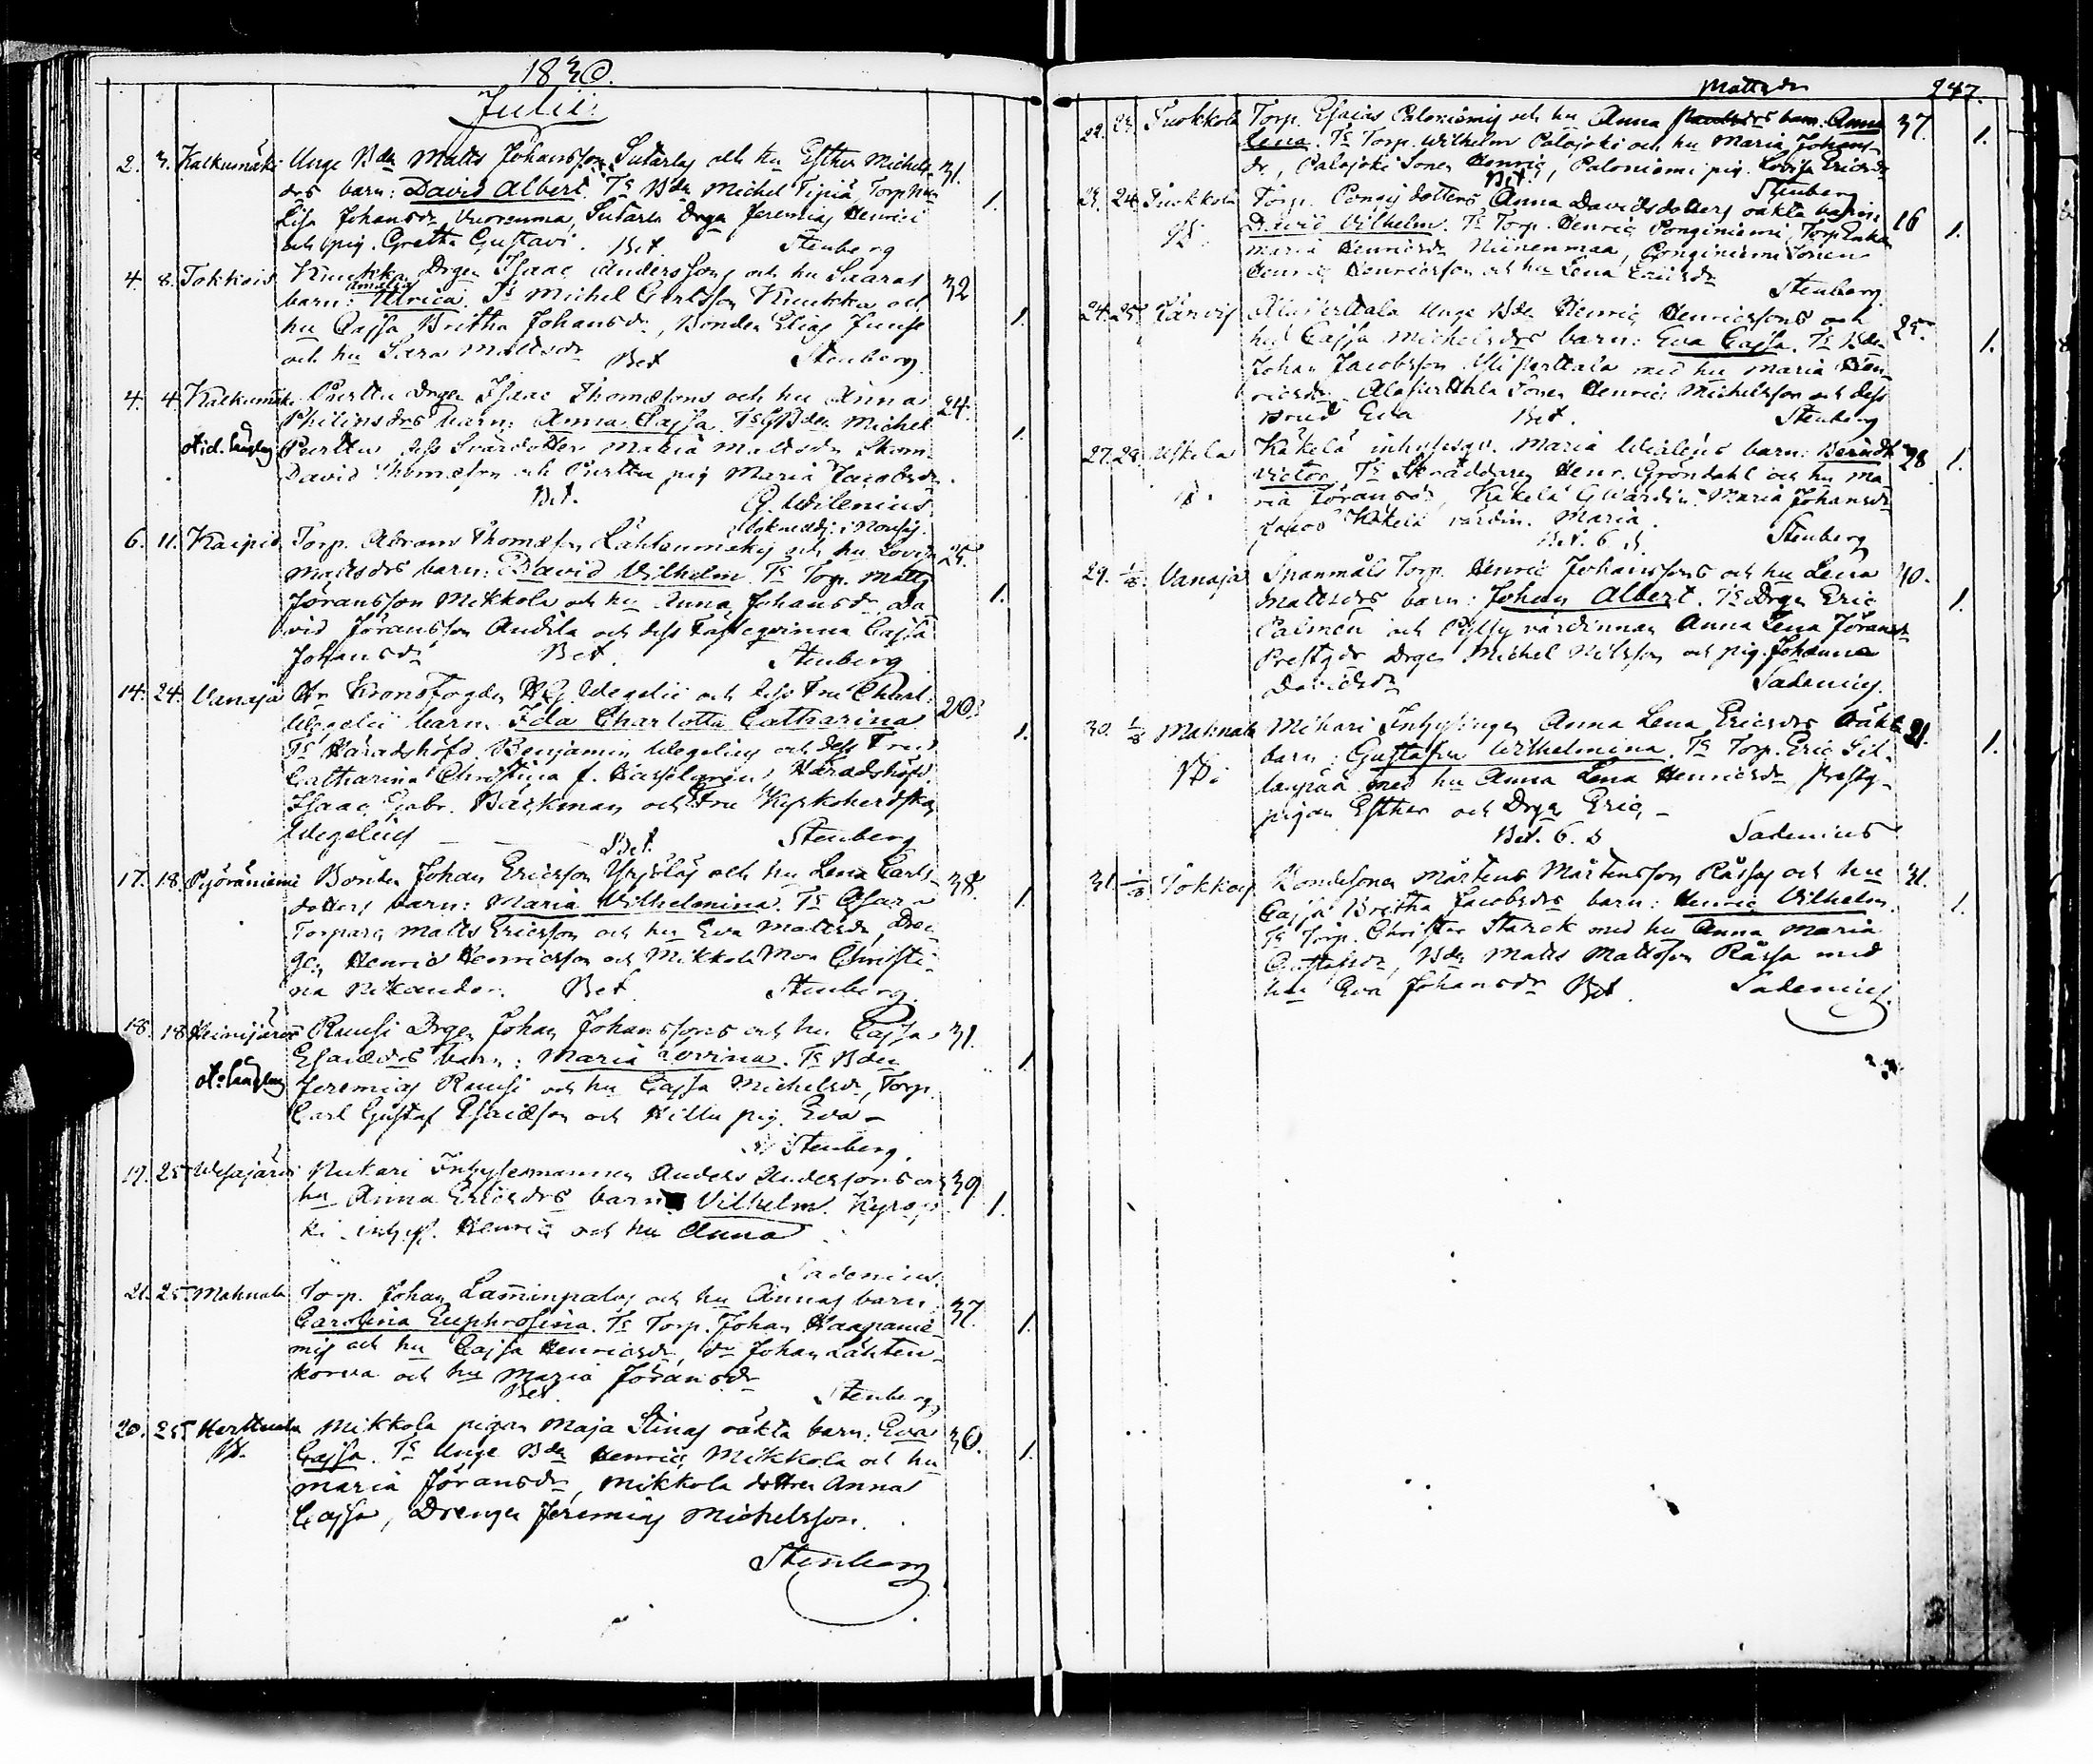 1830.
Julii:
2. 3. Kalkumäki Unge Bdn Matts Johansson Sutarlas och hu Esther Michels- 31.
drs barn: David Albert. Ts Bdn Michel Tipiä, Torp 1.
Lisa Johansdr Vuorenmaa, Sutarla Drgn Jeremias Henrici
och pig. Gretha Gustavi. Bet. Stenberg
4. 8. Tokkois Kuukka Drgen Isaac Anderssons och hu Saaras 32
barn: Amalia Ulrica. Ts Michel Carlsson Kuukka och
hu Cajsa Britha Johansdr, Bonden Elias Junse 1.
och hu Sara Mattsdr Bet Stenberg
4. 4. Kalkumäki Perttu Drgen Isaac Thomæsons och hu Anna 24.
Philipsdrs barn: Anna Cajsa. Ts GBden Michel 1.
Perttu dess Svärdotter Maria Mattsdr Skom.
David Thomæson och Perttu pig Maria Jacobsdr
Bet. G. Wilenius
6. 11. Kaipio Torp. Abram Thomæson Lähteenmäkis och hu Lovisa 25.
Mattsdrs barn: David Vilhelm. Ts Torp. Matts
Göransson Mikkola och hu Anna Johansdr Da- 1.
vid Göransson Andila och dess Fästeqvinna Cajsa
Johansdr Bet. Stenberg
14. 24. Vanaja Hr Kronofogden HG Wegelii och dess Fru Charl: 20.
Wegelii barn. Ida Charlotta Catharina 1.
Ts Häradshöfd. Benjamin Wegelius och dess Fru
Catharina Christina f. Hasselgren, Häradshöfd.
Isaac Gabr. Bäckman och Fru Kyrkoherdskan
Wegelius Bet. Stenberg
17. 18. Pyöräniemi Bonden Johan Ericsson Yrjöläs och hu Lena Carls- 38.
dotters barn: Maria Vilhelmina. Ts 1.
Torparn Matts Ericsson och hu Eva Mattsdr, Dren-
gen Henric Henricsson och Mikkola Mor Christi-
na Nikander. Bet Stenberg.
18. 18. Heinijärvi Ruusi Drgen Johan Johanssons och hu Cajsa 31.
Esaiædrs barn: Maria Lovina. Ts Bden 1.
Jeremias Ruusi och hu Cajsa Michelsdr, Torp.
Carl Gustaf Esaiæson och Hillu pig. Eva
Stenberg.
19. 25 Wesajärvi Nukari Inhysesmannen Anders Anderssons och 39
hu Anna Ericsdrs barn Vilhelm. 1.
ki inhys. Henric och hu Anna
Sadenius.
21. 25. Mahnala Torp. Johan Lamminpalos och hu Annas barn 37.
Carolina Euphrosina. Ts Torp. Johan Haapanie- 1.
mis och hu Cajsa Henricsdr, dr Johan Lähteen-
korva och hu Maria Göransdr
Bet. Stenberg
20. 25 Herttuala Mikkola pigan Maja Stinas oäkta barn: Eva 30.
Cajsa. Ts Unge Bdn Henric Mikkola och hu 1.
Maria Göransdr, Mikkola dottren Anna
Cajsa, Drengen Jeremias Michelsson.
Stenberg
Mattsdr 247.
22. 23. Tuokkola Torp. Esaias Paloniemis och hu Anna barn: Anna 37.
Lena. Ts Torp. Wilhelm Palojoki och hu Maria Johans- 1.
dr, Palojoki Sonen Henric, Paloniemi pig. Lovisa Ericsdr
Bet. Stenberg
23. 24 Tuokkola Torp. dottern Anna Davidsdotters oäkta barn 16
David Vilhelm. Ts Torp. Henric Ponginiemi, Torp Enkan 1.
Maria Henricsdr Niinenmaa, Ponginiemi Sonen
Henric Henricsson och hu Lena Ericsdr
Stenberg
24. 25 Järvis Alapertala Unge Bdn Henric Henricssons och 25.
hu Cajsa Michelsdrs barn: Eva Cajsa. Ts Bden 1.
Johan Jacobsson Ylipertala med hu Maria Hen-
ricsdr. Alapertala Sonen Henric Michelsson och dess
Brud Eva Bet. Stenberg
27. 28. Uskela Käkelä inhysesqv. Maria Idealens barn: Berndt 28
Victor. Ts Skräddaren Henr. Gröndahl och hu Ma- 1.
ria Göransdr, Käkelä GWärdin Maria Johansdr
Käkelä värdin. Maria.
Bet. 6 s. Stenberg
29. 1/8. Vanaja Spanmåls Torp. Henric Johanssons och hu Lena 40.
Mattsdrs barn: Johan Albert. Ts Drgn Eric 1.
Palmén och värdinnan Anna Lena Göransdr
Prestgds Drgn Michel Nilsson och pig. Johanna
Davidsdr Sadenius.
30. 1/8 Mahnala Mihari Inhysingen Anna Lena Ericsdrs oäkta 21.
barn: Gustafva Wilhelmina. Ts Torp. Eric Sil- 1.
lanpää med hu Anna Lena Henricsdr Prestg-
pigan Esther och Drgn Eric
Bet. 6. s Sadenius
31. 1/8 Tokkois Bondesonen Mårtens Mårtensson Råssas och hu 31.
Cajsa Britha Jacobsdrs barn: Henric Vilhelm. 1.
Ts Torp. Christer Starck med hu Anna Maria
Gustafsdr, Bdn Matts Mattsson Råssa med
hu Eva Johansdr Bet. Sadenius.